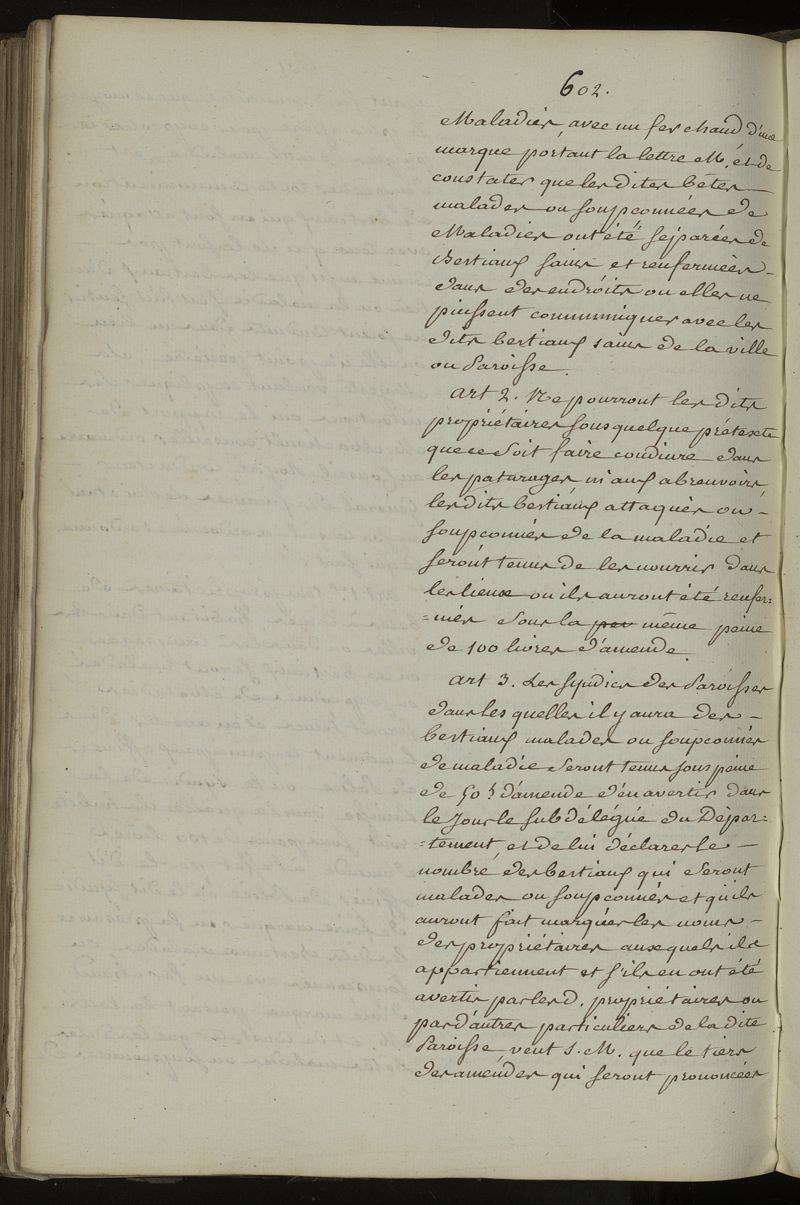 602.
Maladies, avec un fer chaud d'une
marque portant la lettre M. et de
constater que les dites bêtes —
malades ou soupconnées de
Maladies ont été séparées de
Bestiaux sains et renfermées -
dans des endroits ou elles ne
puissent communiquer avec les
dits bestiaux sains de la ville
ou Paroisse.
Art 2. Ne pourront les dits
propriétaires sous quelque prétexte
que ce soit faire conduire dans
les paturages ni aux abreuvoirs
les dits bestiaux attaqués ou -
soupconnés de la maladie et
seront tenus de les nourrir dans
les lieux ou ils auront été renfer=
=més sous la même peine
de 100 livres d'amende.
Art 3. Les syndics des Paroisses
dans les quelles il y aura des -
bestiaux malades ou soupconnés
de maladie seront tenus sous peine
de 50 ₶ d'amende d'en avertir dans
le Jour le subdélégué du Dépar=
=tement, et de lui déclarer le —
nombre des bestiaux qui seront
malades ou soupconnés et qu'ils
auront fait marquer les noms -
des propriétaires auxquels ils
appartiennent et s'ils en ont été
avertis par les d. propriétaires ou
par d'autres particuliers de la dite
Paroisse, veut S. M. que le tiers
des amendes qui seront prononcées